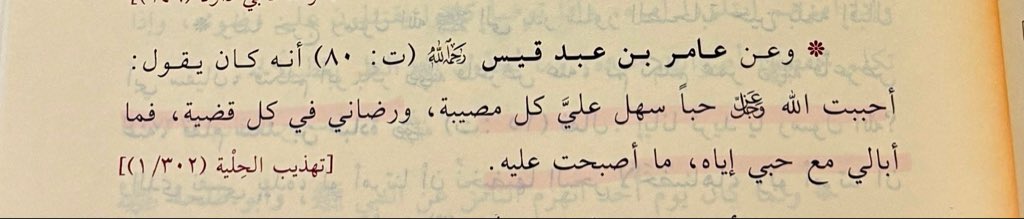 * وعن عامر بن عبد قيس رَحِمَهُ ٱللَّهُ (ت: ٨٠) أنه كان يقول:
أحببت الله عَزَّوَجَلَّ حباً سهل عليَّ كل مصيبة، ورضاني في كل قضية، فما
أبالي مع حبي إياه، ما أصبحت عليه. [تهذيب الحِلْية (١/٣٠٢)]